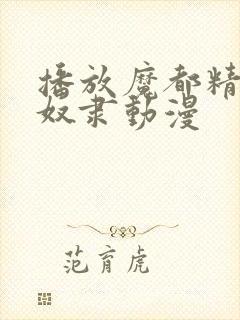 播放魔都精
奴隶動漫
范育虎